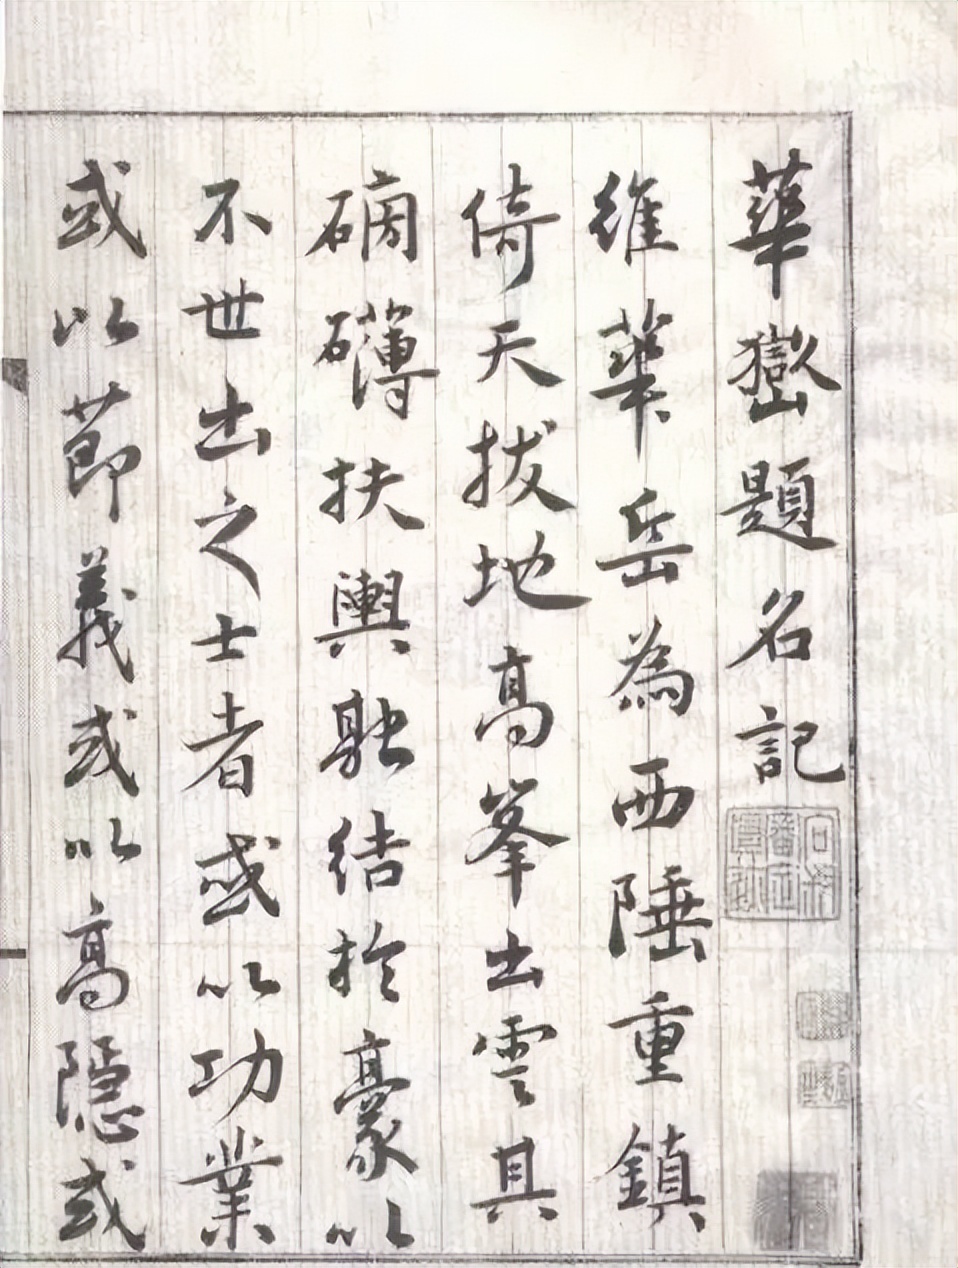 華嶽題名記
維華岳為西陲重鎮
倚天拔地高峯出雲具
磅礴扶輿融結於豪以
不世出之士者或以功業
或以節義或以高隱或